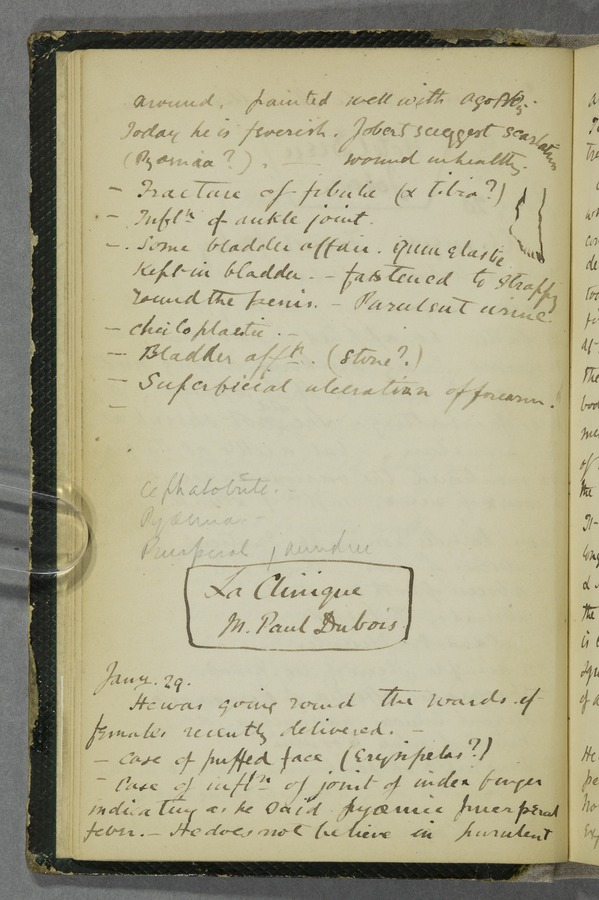 around. painted well with
Today he is feverish. Jobert suggest scarlatina
(Pyæmia?). — wound unhealthy.
— Fracture of fibula (& tibia?)
— Inflⁿ of ankle joint.
— Some bladder affair. gum elastic
kept in bladder. — fastened to strapp
round the penis. — Purulent urine.
— cheiloplastic. —
— Bladder affⁿ. (stone?)
— Superficial ulceration of forearm.
—
cephalotribe. —
Pyæmia —
Puerperal jaundice
La Clinique
M. Paul Dubois
Jany. 29.
He was going round the wards of
females recently delivered. —
— Case of puffed face (Erysipelas?)
— Case of inflⁿ of joint of index finger
indicating as he said pyæmic puerperal
fever. — He does not believe in purulent